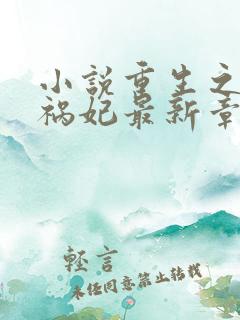 小说重生之
祸妃最新章
轻言
未经同意禁止转载